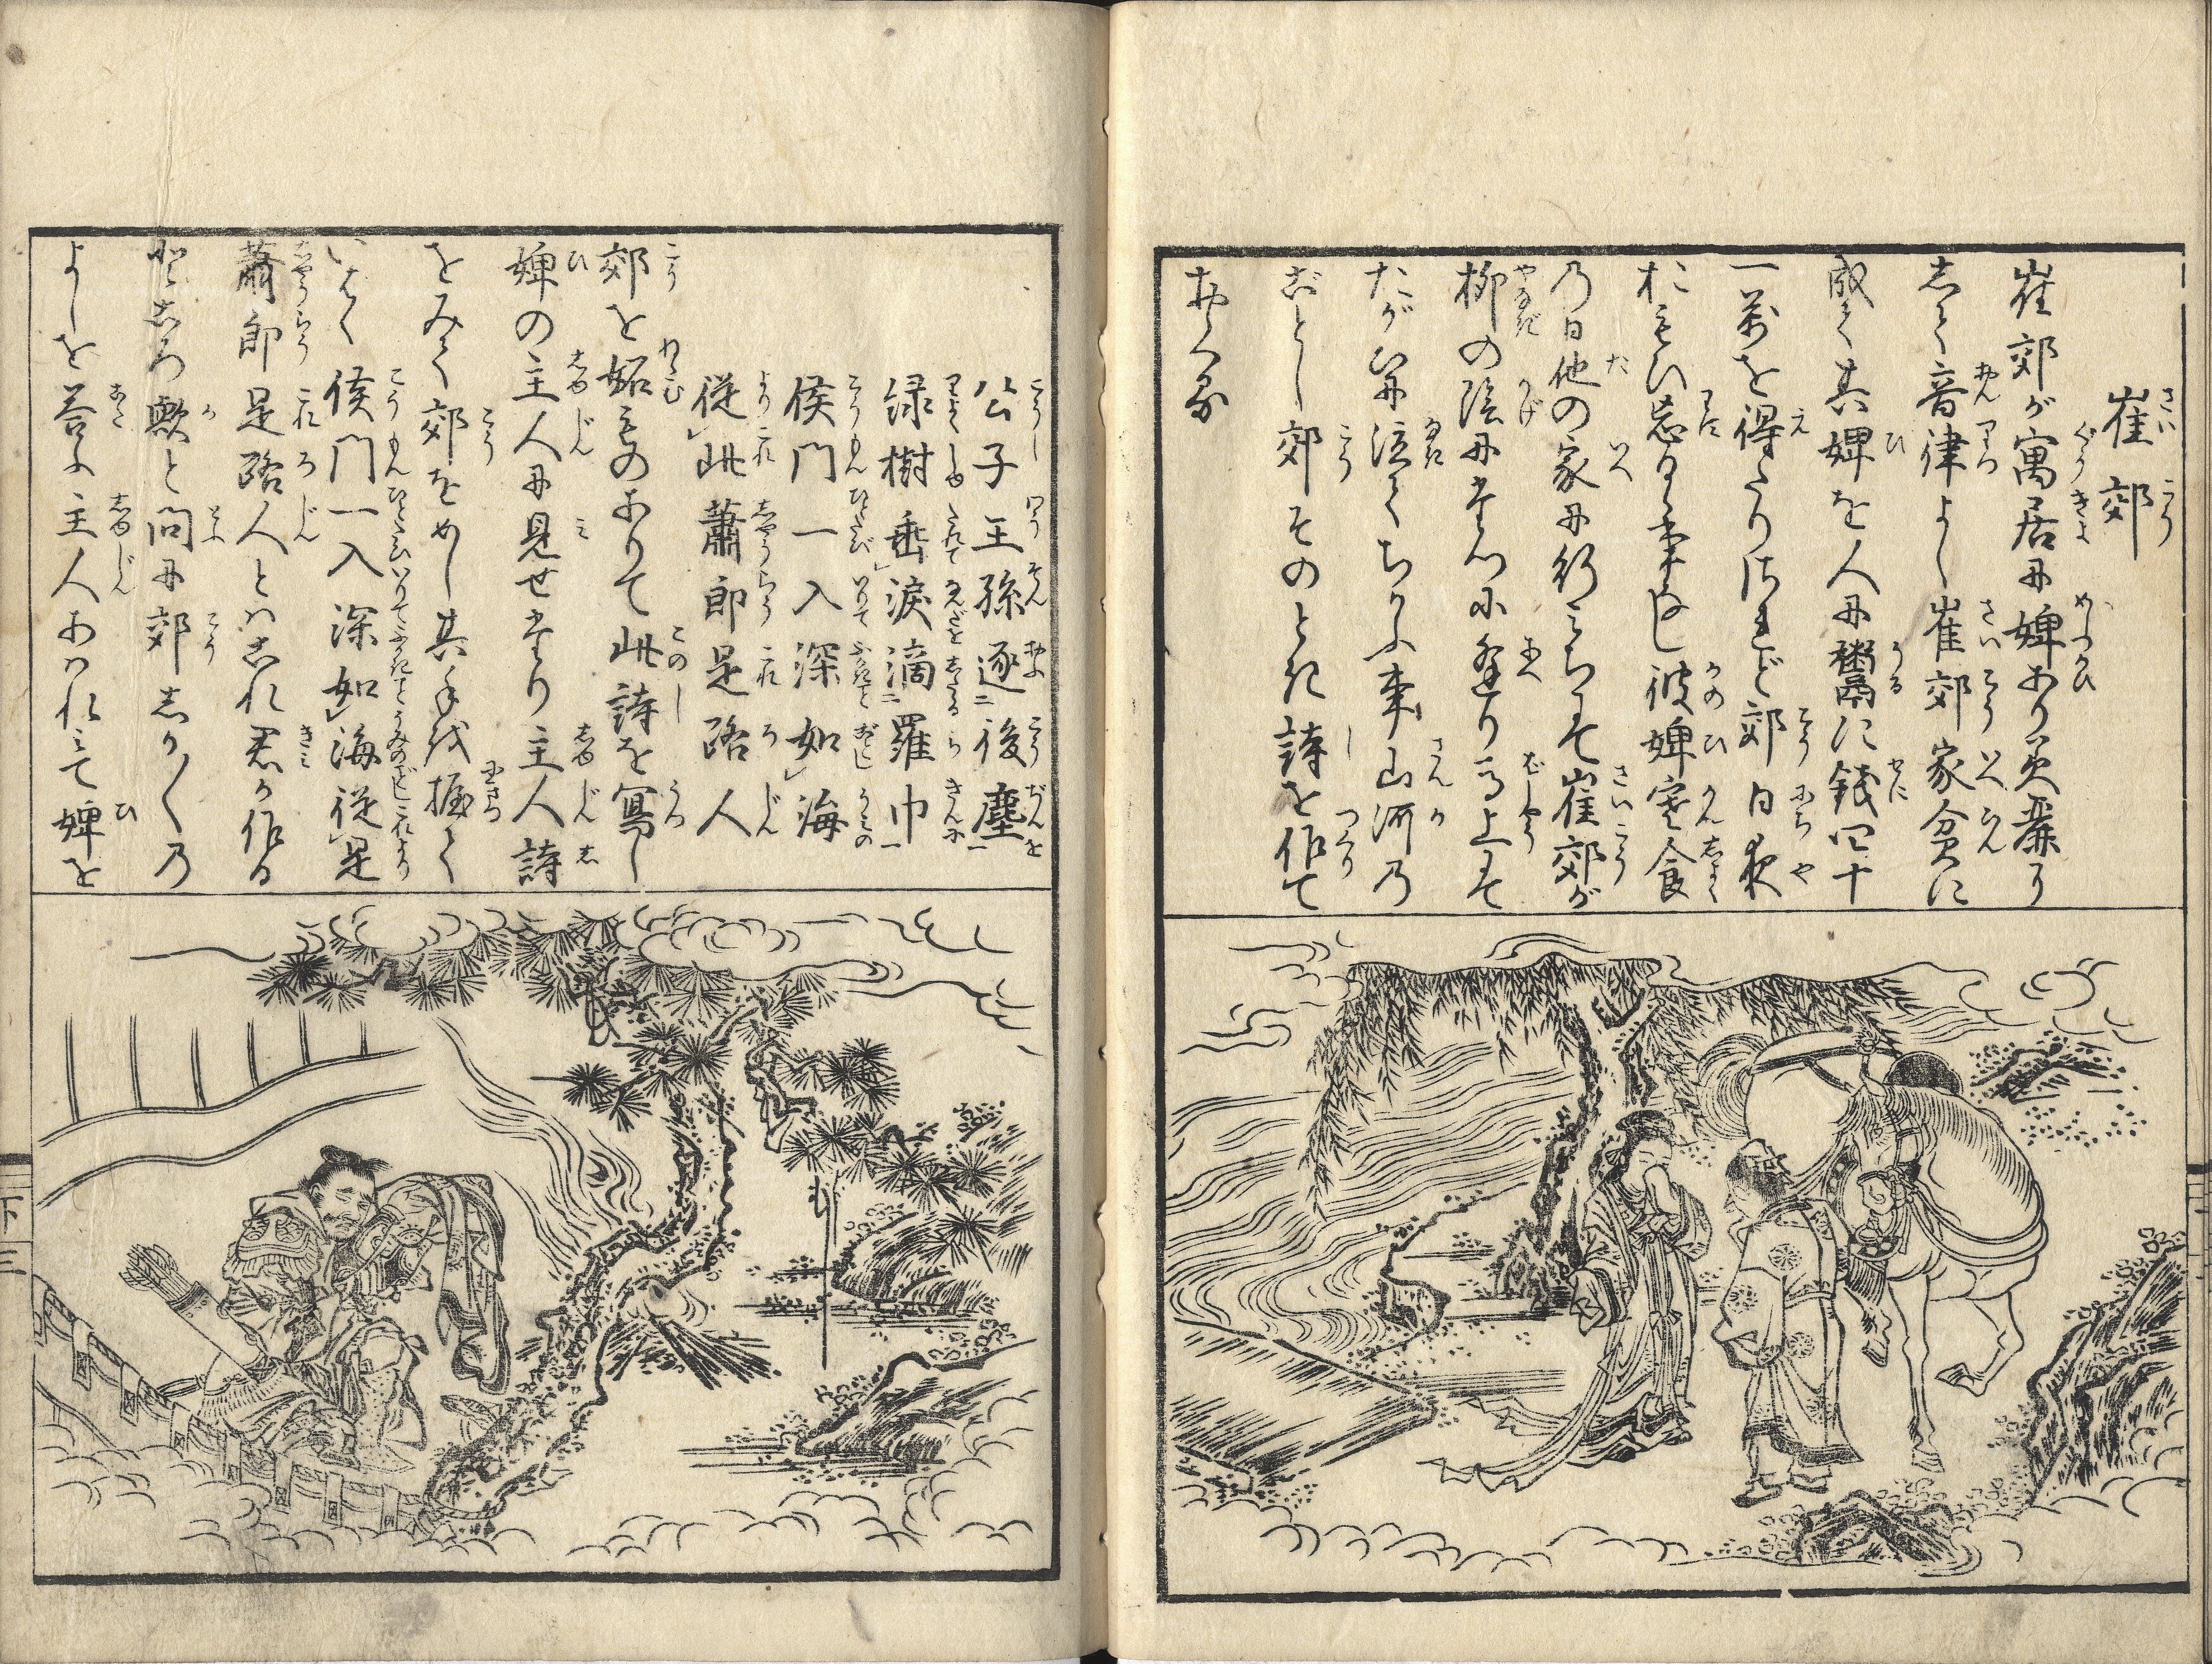 崔郊
崔郊が寓居に婢あり美麗に
して音律よし崔郊家貧に
成て其婢を人に鬻に銭四十
一万を得たり然れど郊日夜
におもひ忘るゝ事なし彼婢寒食
の日他の家に行みちにて崔郊が
柳の陰に立るに逢り馬上にて
たがひに泣てちかふ事山河の
ごとし郊そのとき詩を作て
おくる
公子王孫逐後塵
緑樹垂涙滴羅巾
侯門一入深如海
従此蕭郎是路人
郊を妬ものありて此詩を写し
婢の主人に見せたり主人詩
をみて郊をめし其手を握て
いはく侯門一入深如海従是
蕭郎是路人とはこれ君が作る
ところ歟と問に郊しか〳〵の
よしを答ふ主人あはれみて婢を
下 三